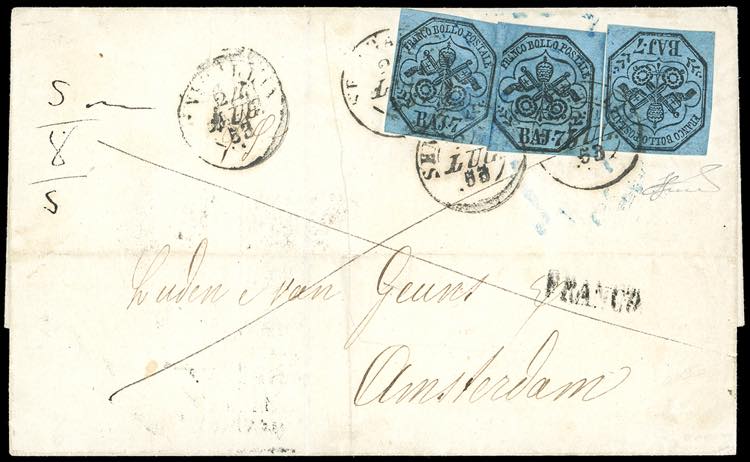 FRANCO BOLLO POSTALE
BAJ-7
FRANCO BOLLO POSTALE
BAJ-7
FRANCO BOLLO POSTALE
BAJ-7
24
LUG
53
LUG
53
53
S
8
S
FRANCO
Luden & van Geuns
Amsterdam